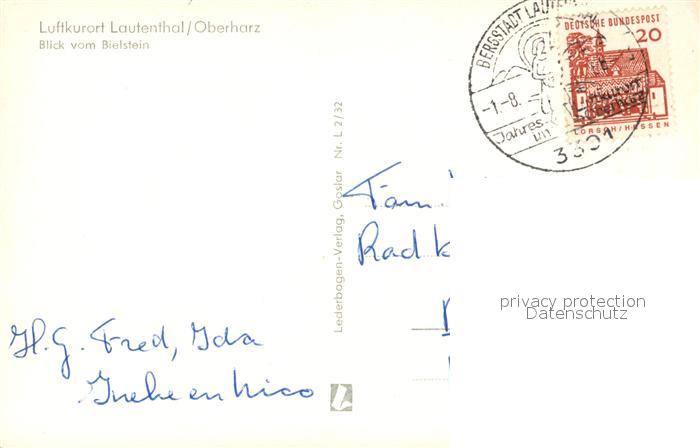 Luftkurort Lautenthal/Oberharz
Blick vom Bielstein
BERGSTADT LAUTEN
-1.-8.
Jahres
im
3391
DEUTSCHE BUNDESPOST
20
LORSCH/HESSEN
Lederbogen-Verlag, Goslar Nr. L 2/32
Fam
Radk
privacy protection
Datenschutz
H.G. Fred, Ida
Ineke en Nico